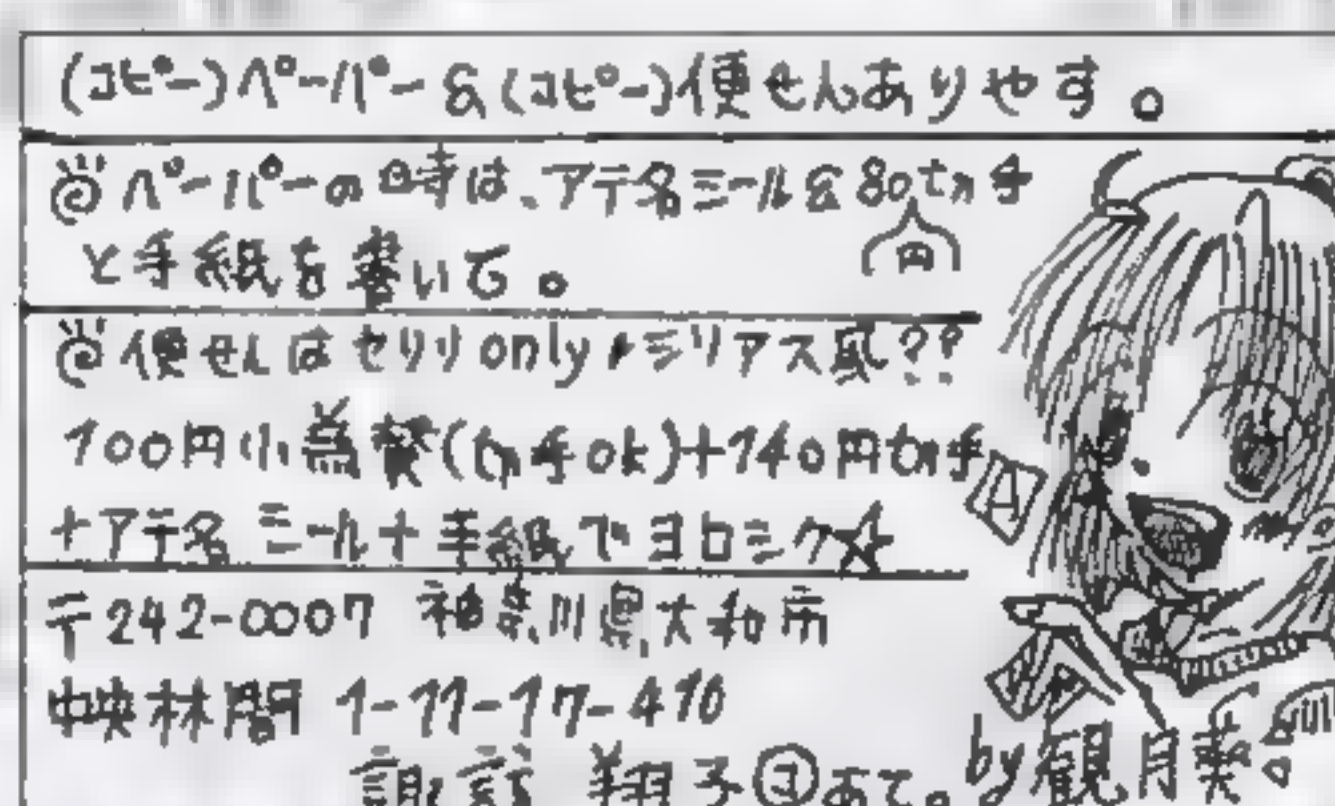 (コピー)ペーパー&(コピー)便せんありやす。
ペーパーの時は、アテ名シール&80切手
(円)
と手紙を書いて。
便せんはセリリonly、シリアス風??
100円小為替(切手ok)+140円切手
+アテ名シール+手紙でヨロシク☆
A
〒242-0007 神奈川県大和市
中央林間 1-11-17-410
諏訪 翔子 あて。
by観月